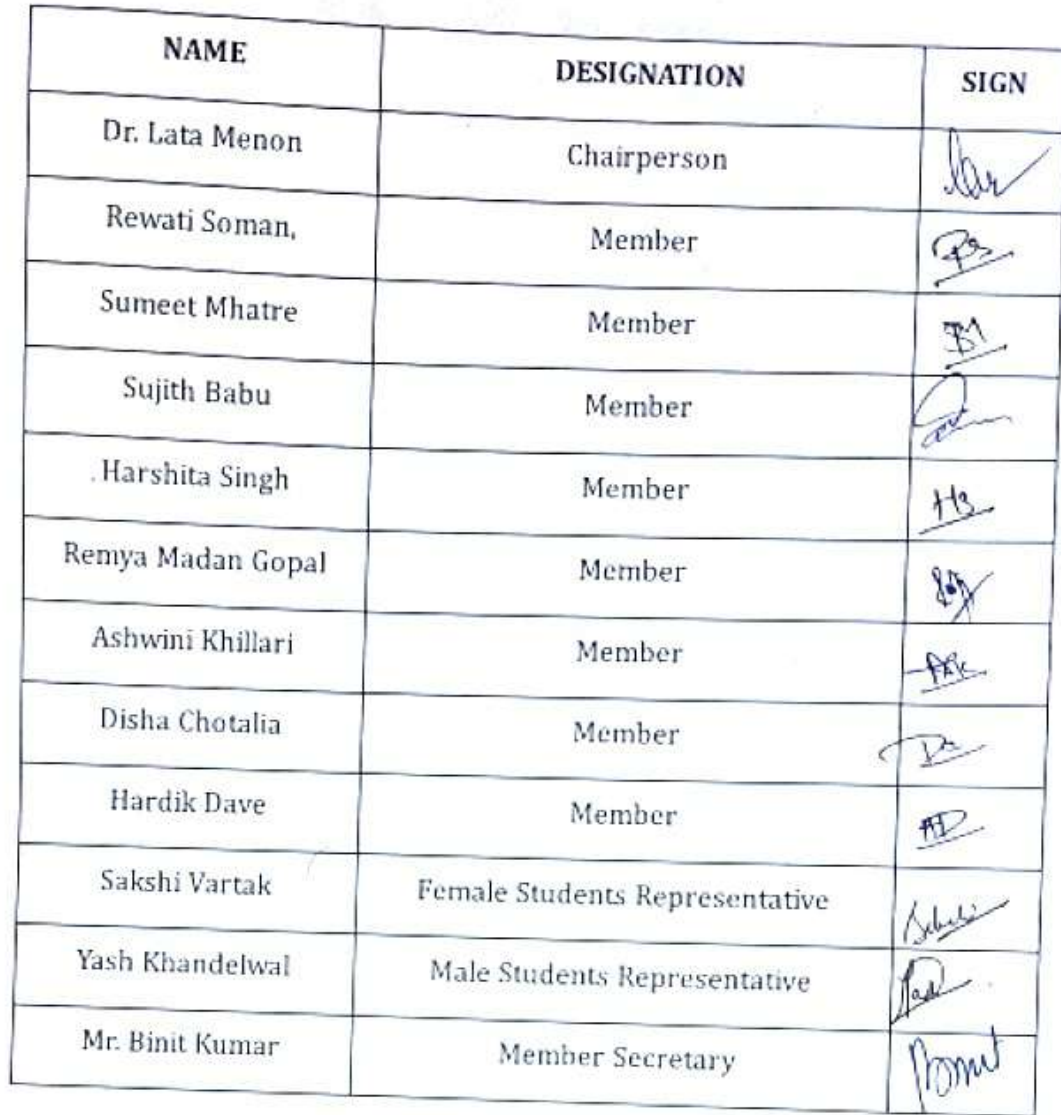 NAME DESIGNATION SIGN
Dr. Lata Menon Chairperson
Rewati Soman, Member
Sumeet Mhatre Member
Sujith Babu Member
Harshita Singh Member HS
Remya Madan Gopal Member
Ashwini Khillari Member
Disha Chotalia Member
Hardik Dave Member HD
Sakshi Vartak Female Students Representative
Yash Khandelwal Male Students Representative
Mr. Binit Kumar Member Secretary